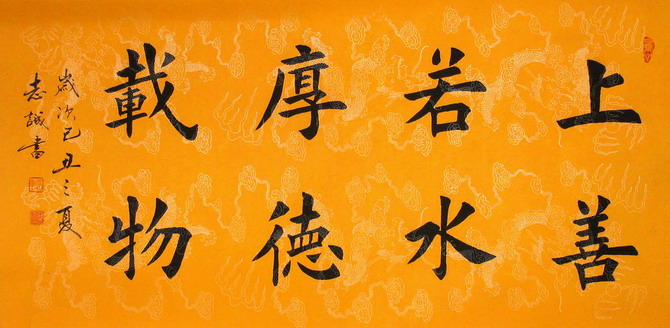 上善
若水
厚德
載物
歲次己丑之夏
志誠書